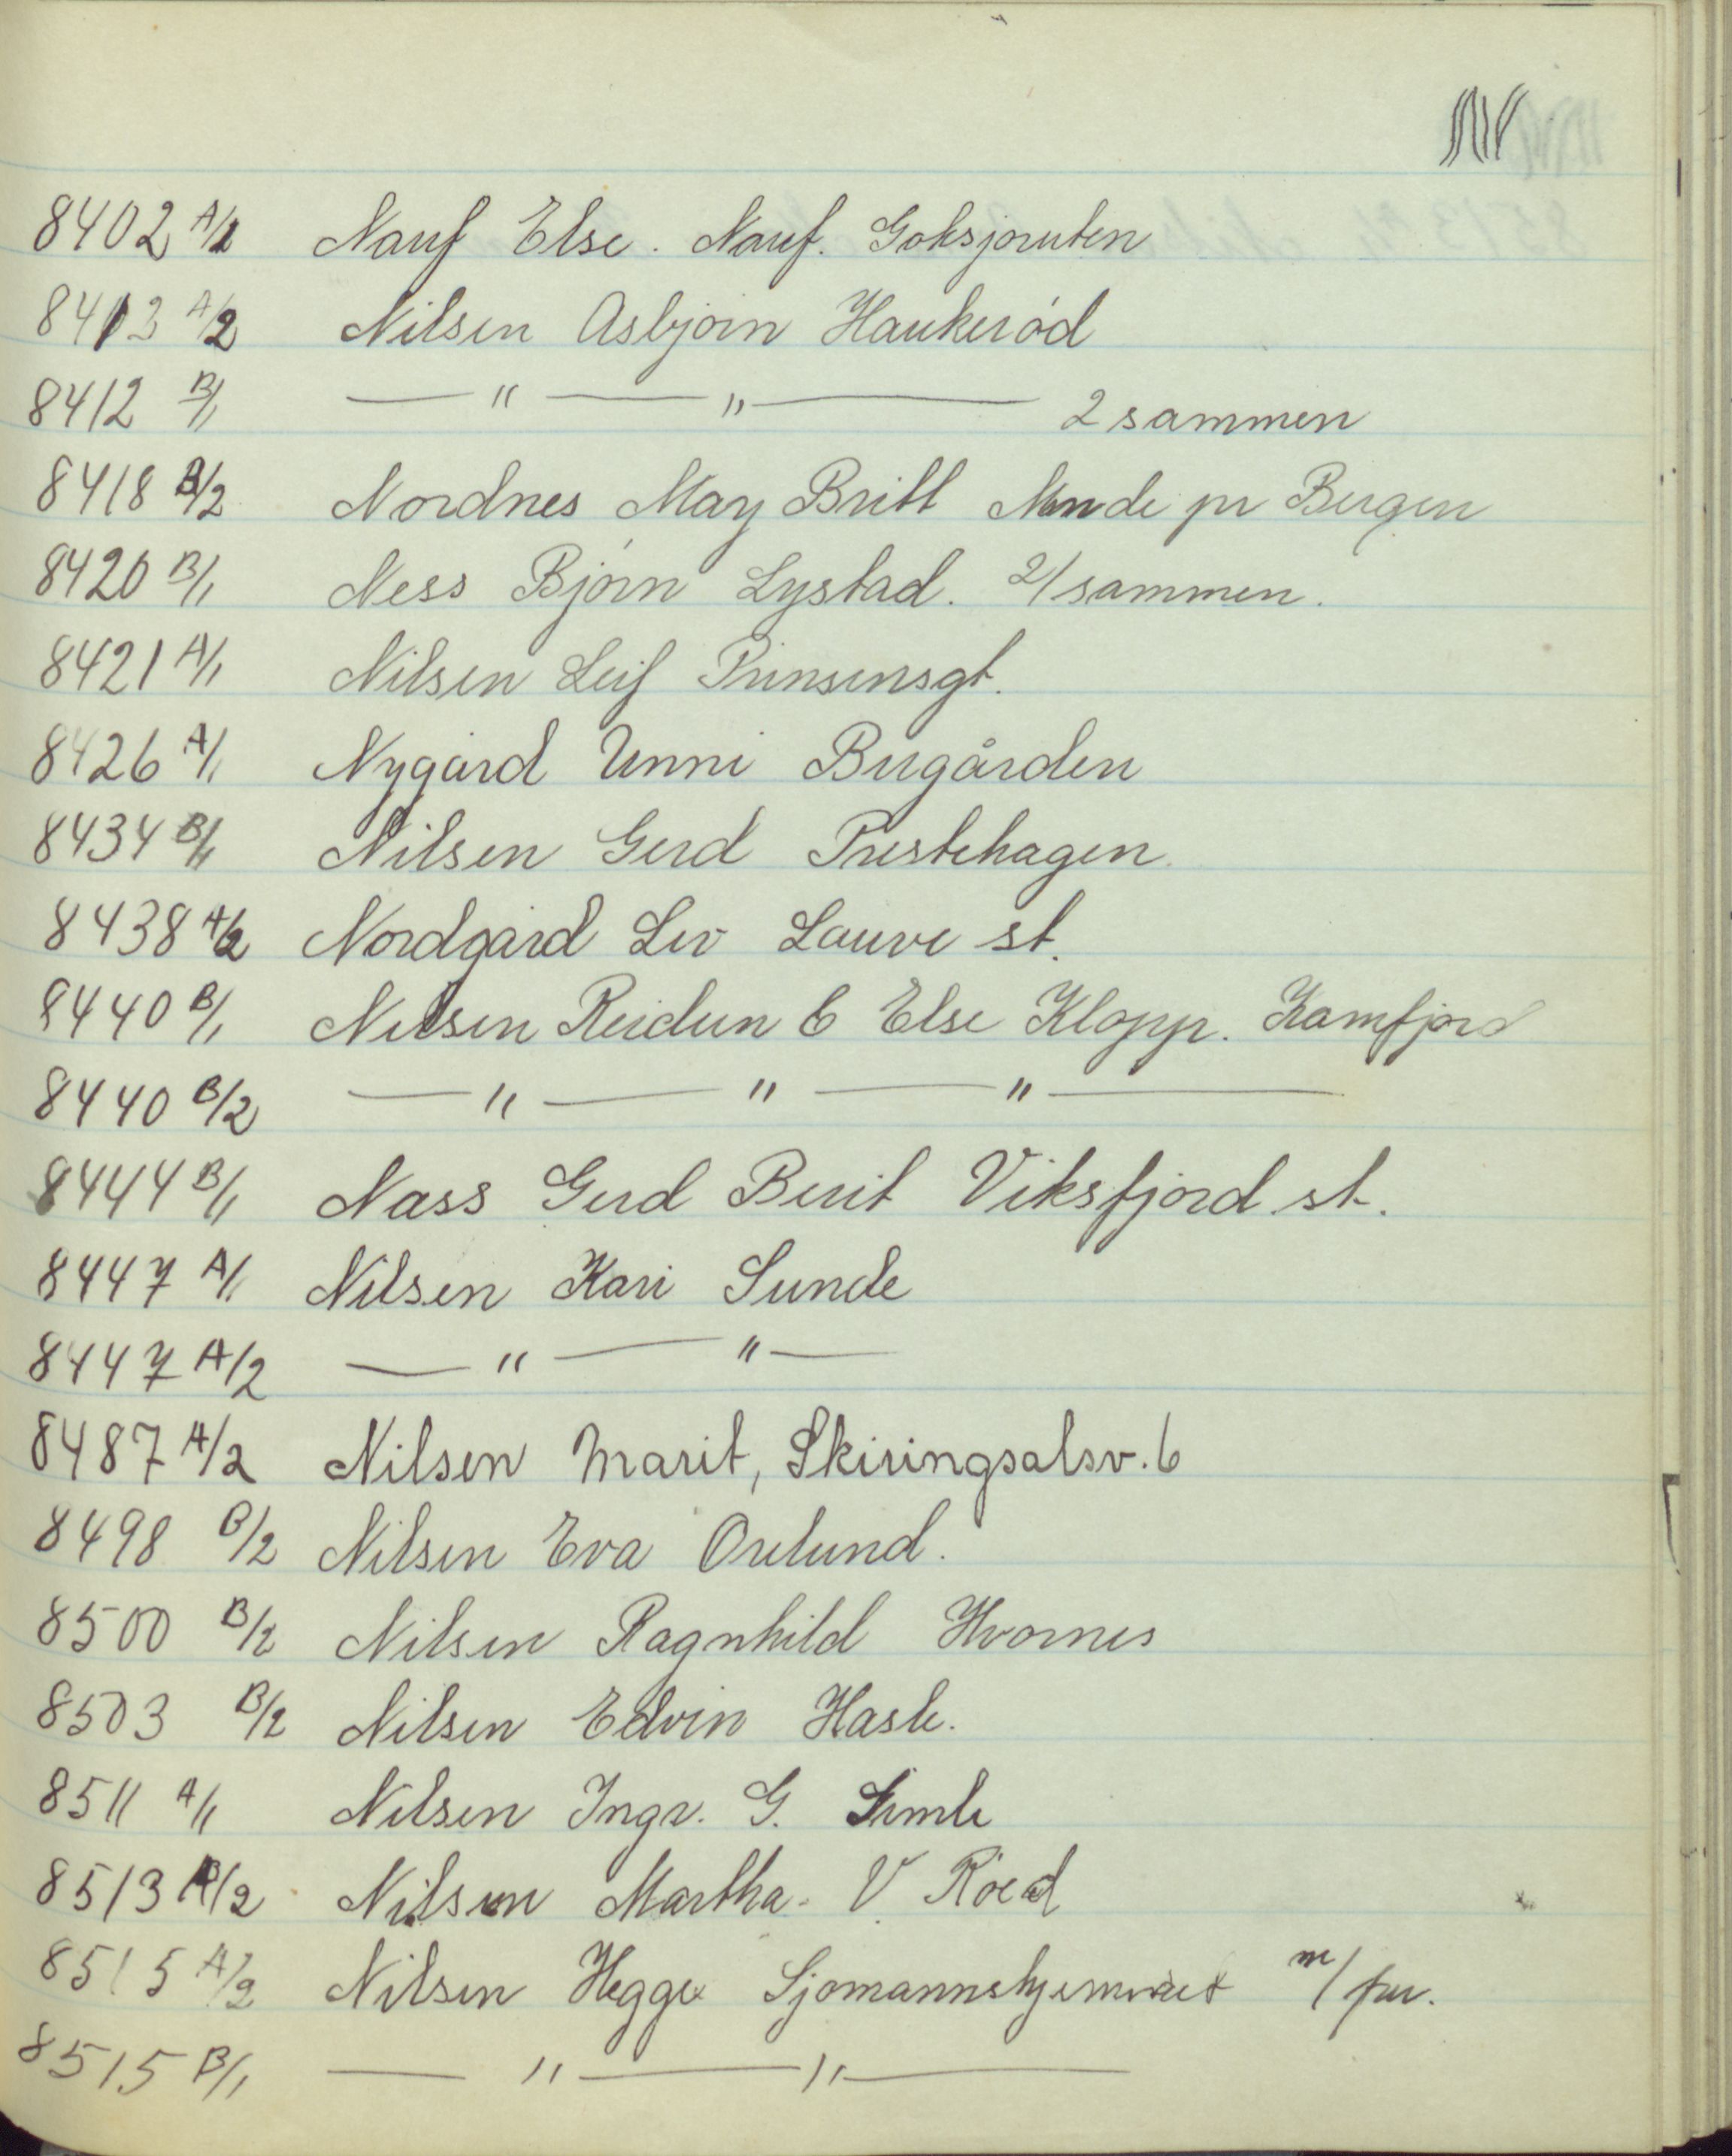 N
8402 A/1 Nauf Else. Nauf. Goksjoruten
8413 A/2 Nilsen Asbjörn Haukeröd
8412 B/1 — " — " — 2 sammen
8418 B/2 Nordnes May Britt Minde pr Bergen
8420 B/1 Ness Björn Lystad. 2/sammen.
8421 A/1 Nilsen Leif Prinsensgt.
8426 A/1 Nygård Unni Bugården
8434 B/1 Nilsen Gerd Prestehagen
8438 A/2 Nordgård Liv Lauve st.
8440 B/1 Nilsen Reidun & Else Klopp. Kamfjord
8440 B/2 — " — " — " —
8444 B/1 Nass Gerd Berit Viksfjord st.
8447 A/1 Nilsen Kari Sunde
8447 A/2 — " — " —
8487 A/2 Nilsen Marit, Skiringsalsv. 6
8498 B/2 Nilsen Eva Orelund.
8500 B/2 Nilsen Ragnhild Hvarnes
8503 B/2 Nilsen Edvin Hasle.
8511 A/1 Nilsen Ingv. G. Gimle
8513 A/2 Nilsen Martha. V. Röed
8515 A/2 Nilsen Hegge Sjomannshjemmet m/fru.
8515 B/1 — " — " —